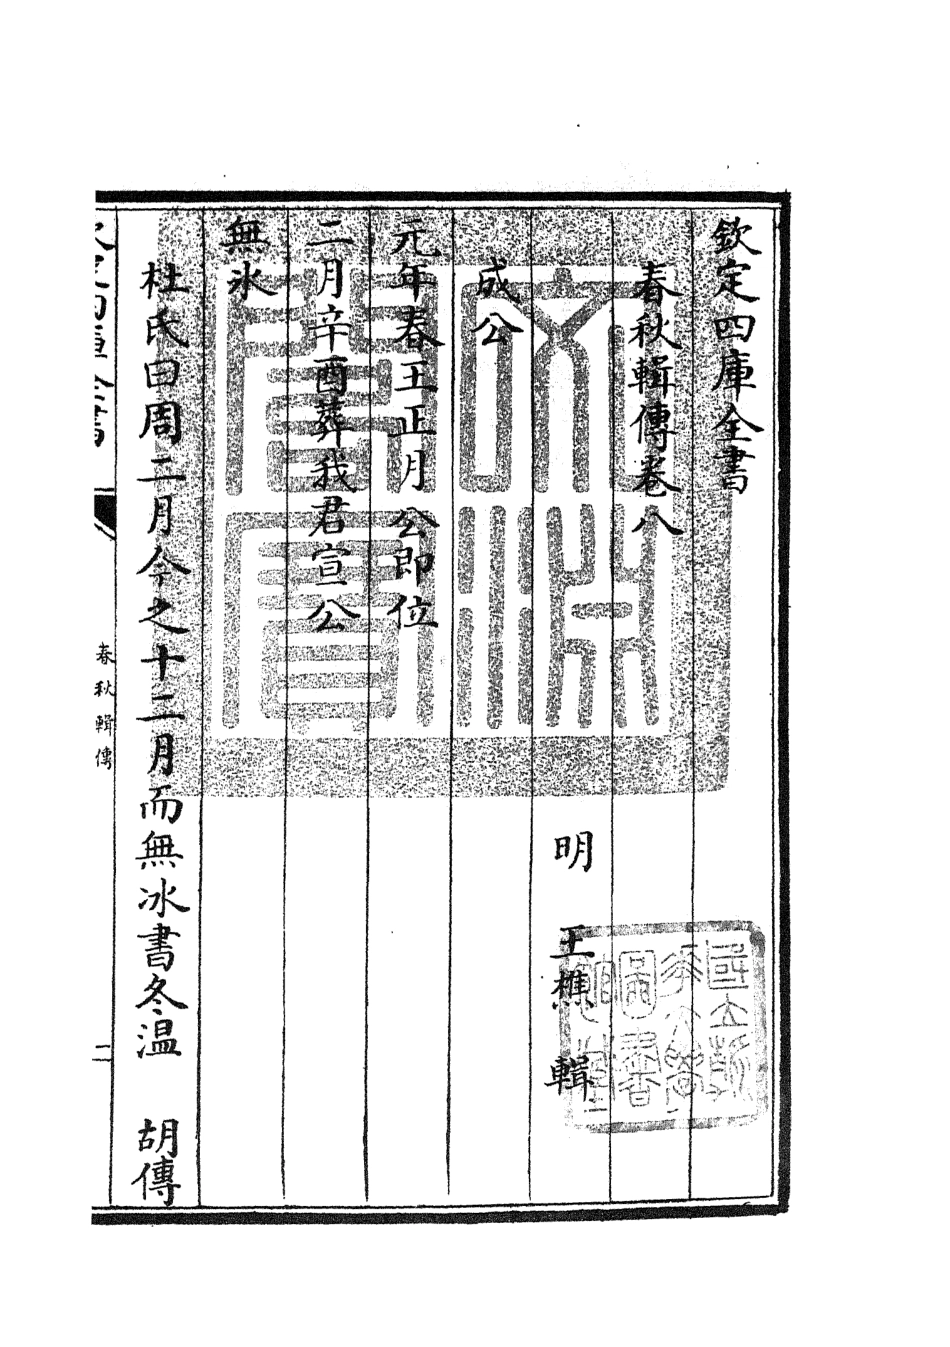 欽定四庫全書
春秋輯傳卷八
明 王樵 輯
成公
元年春王正月公即位
二月辛酉葬我君宣公
無氷
杜氏曰周二月今之十二月而無冰書冬温 胡傳
春秋輯傳